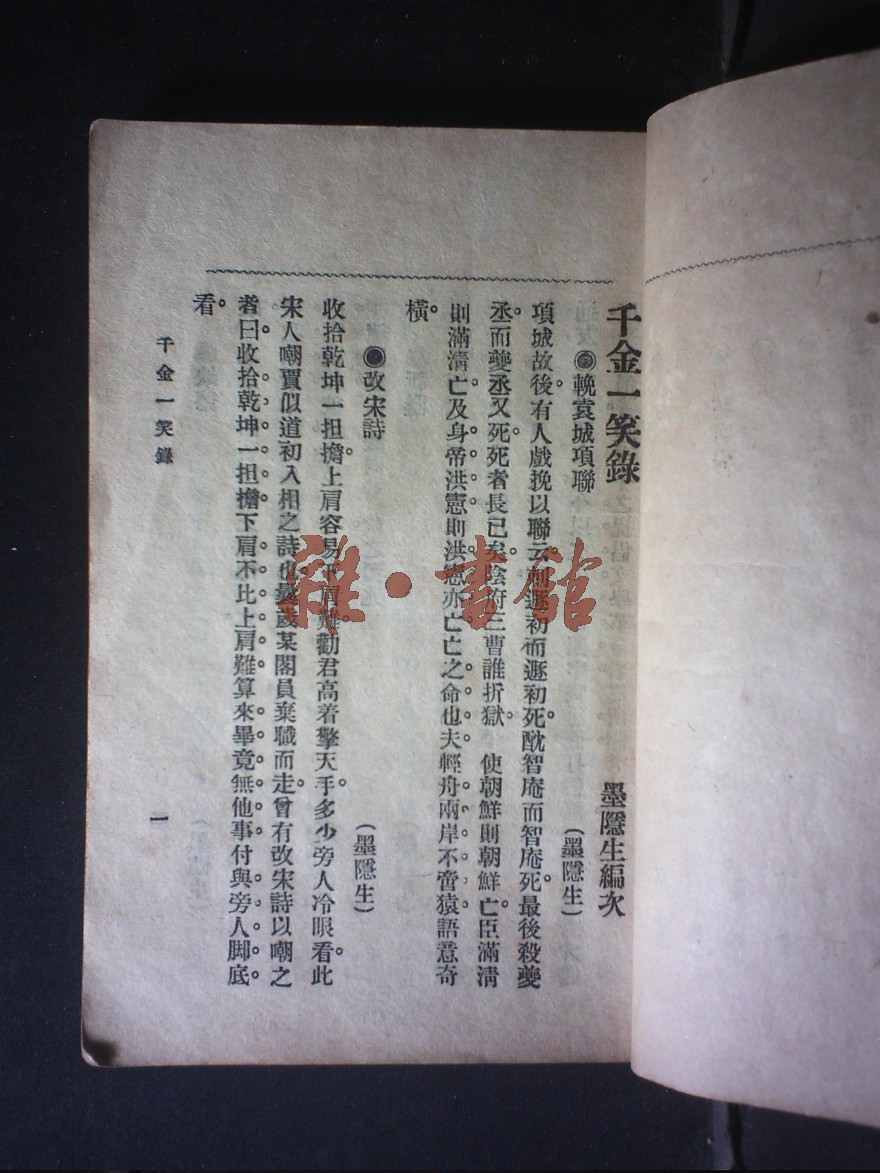 千金一笑錄
墨隱生編次
●輓袁城項聯
(墨隱生)
項城故後。有人戲挽以聯云。刺遯初而遯初死。酖智庵而智庵死。最後殺夔
丞而夔丞又死。死者長已矣。陰府三曹誰折獄。 使朝鮮則朝鮮亡。臣滿淸
則滿淸亡。及身帝洪憲則洪憲亦亡。亡之命也夫。輕舟兩岸不啻猿。語意奇
橫。
●改宋詩
(墨隱生)
收拾乾坤一担擔。上肩容易下肩難。勸君高着擎天手。多少旁人冷眼看。此
宋人嘲賈似道初入相之詩也。曩歲某閣員棄職而走。曾有改宋詩以嘲之
者。曰。收拾乾坤一担擔。下肩不比上肩難。算來畢竟無他事。付與旁人脚底
看。
千金一笑錄
一
雜·書館